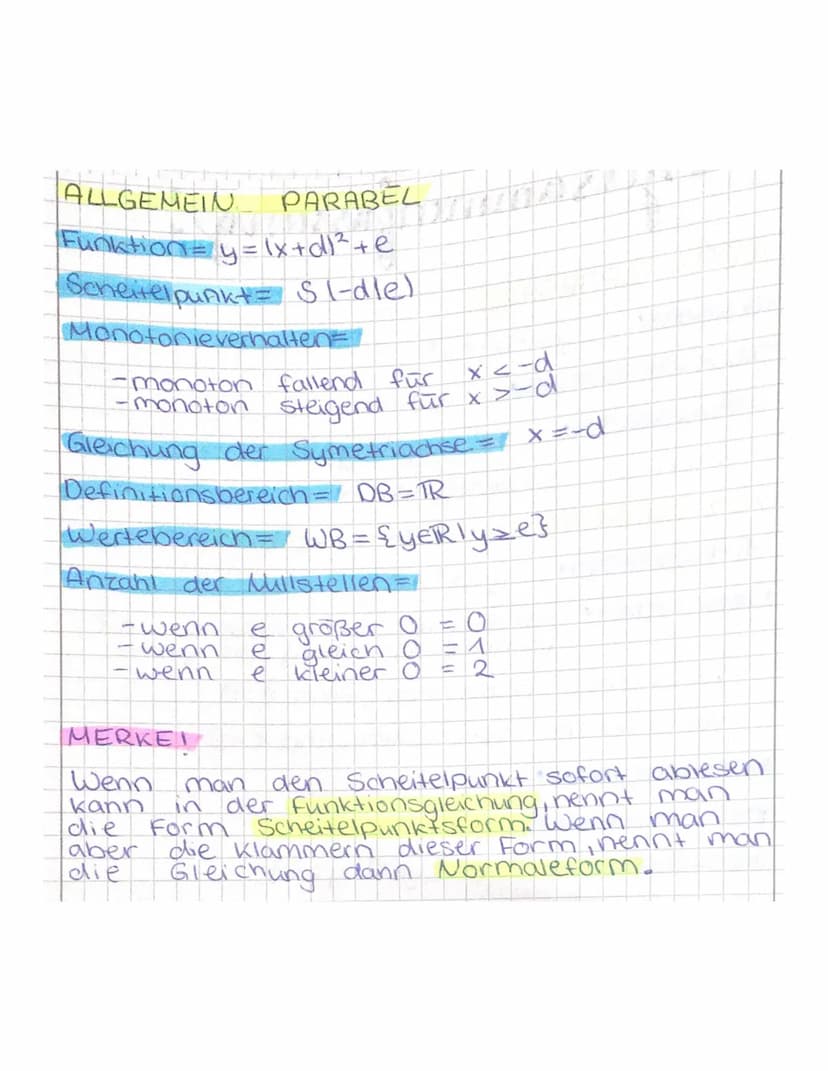 ALLGEMEIN PARABEL
Funktion= y=(x+d)²+e
Scheitelpunkt= S(-d|e)
Monotonieverhalten=
-monoton fallend für x<-d
-monoton steigend für x>-d
Gleichung der Symetriachse= x=-d
Definitionsbereich= DB=ℝ
Wertebereich= WB={y∈ℝ|y≥e}
Anzahl der Nullstellen=
-wenn e größer 0 = 0
-wenn e gleich 0 = 1
-wenn e kleiner 0 = 2
MERKE!
Wenn man den Scheitelpunkt sofort ablesen
kann in der Funktionsgleichung, nennt man
die Form Scheitelpunktsform. Wenn man
aber die Klammern dieser Form, nennt man
die Gleichung dann Normaleform.